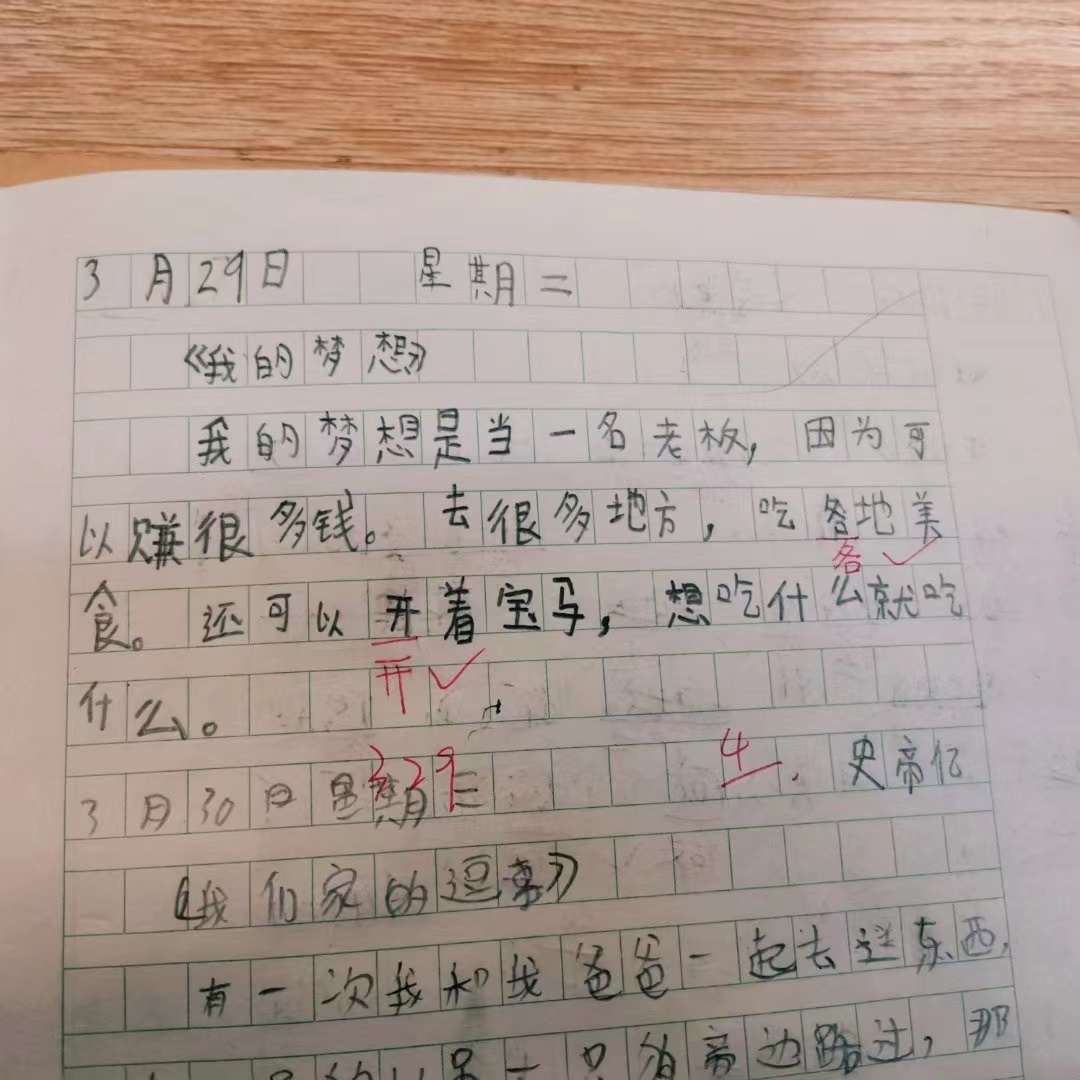 3月29日 星期二
《我的梦想》
我的梦想是当一名老板，因为可
以赚很多钱。去很多地方，吃各地美
各
食。还可以开着宝马，想吃什么就吃
开
什么。
4.
3 29
3月30日星期三 史帝亿
《我们家的逗事》
有一次我和我爸爸一起去送东西，
边路过，那